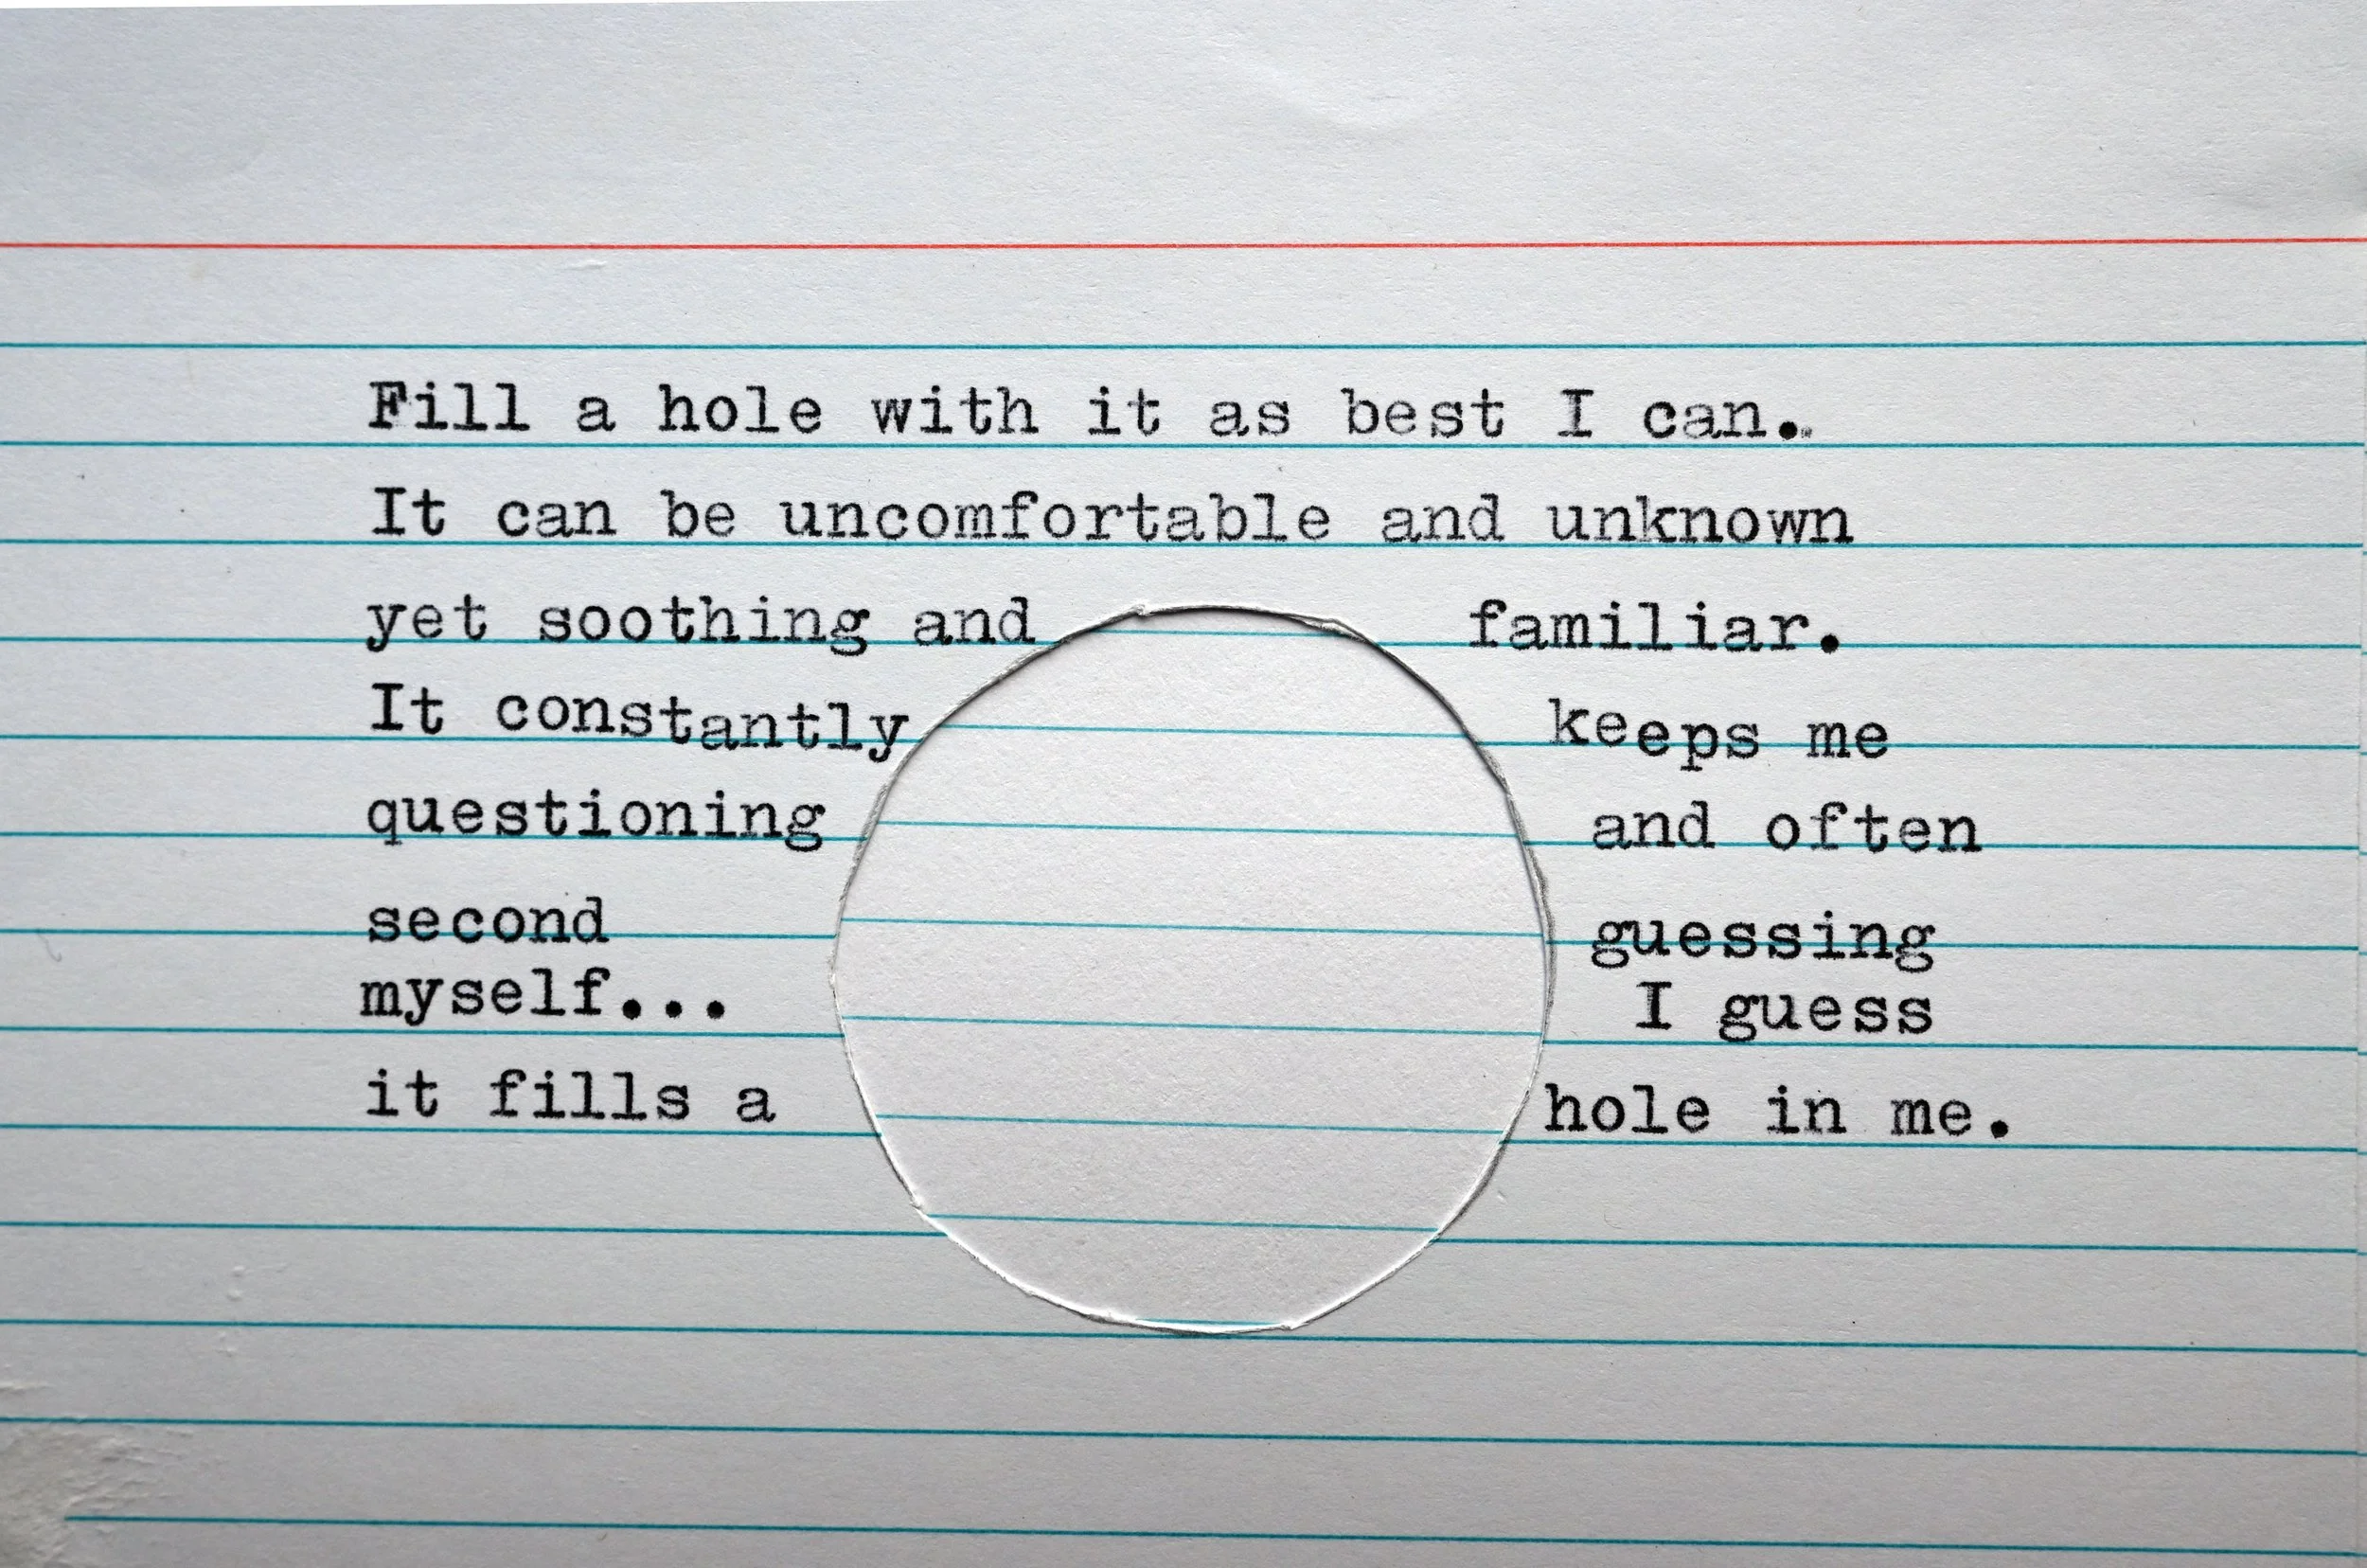 Fill a hole with it as best I can.
It can be uncomfortable and unknown
yet soothing and familiar.
It constantly keeps me
questioning and often
second guessing
myself... I guess
it fills a hole in me.